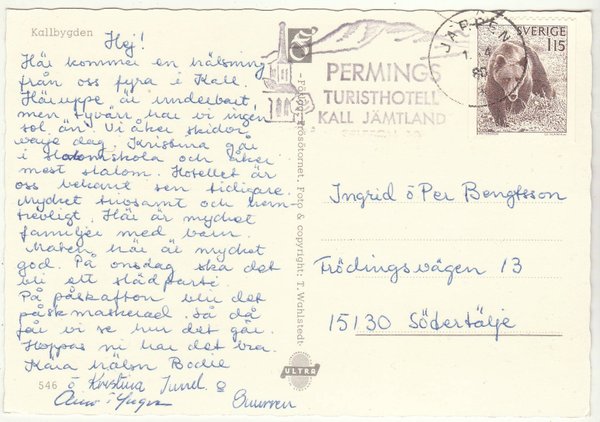 Kallbygden
Hej!
Här kommer en hälsning
från oss fyra i Kall.
Häruppe är underbart
men tyvärr har vi ingen
sol än. Vi åker skidor
varje dag. går
i slalomskola och åker
mest slalom. Hotellet är
oss bekant sen tidigare.
Mycket livsamt och hem-
trevligt. Här är mycket
familjer med barn.
Maten här är mycket
god. På onsdag ska det
bli ett slädparti.
På påskafton blir det
påskmaskerad. Så då
får vi se hur det går.
Hoppas ni har det bra.
Kära hälsn Bodil
o Kristina &
546
Förlag: Frösötornet. Foto & copyright: T. Wahlstedt
PERMINGS
TURISTHOTELL
KALL JÄMTLAND
JÄRPEN
80
SVERIGE
115
Ingrid o Per Bengtsson
Frödingsvägen 13
15130 Södertälje
ULTRA